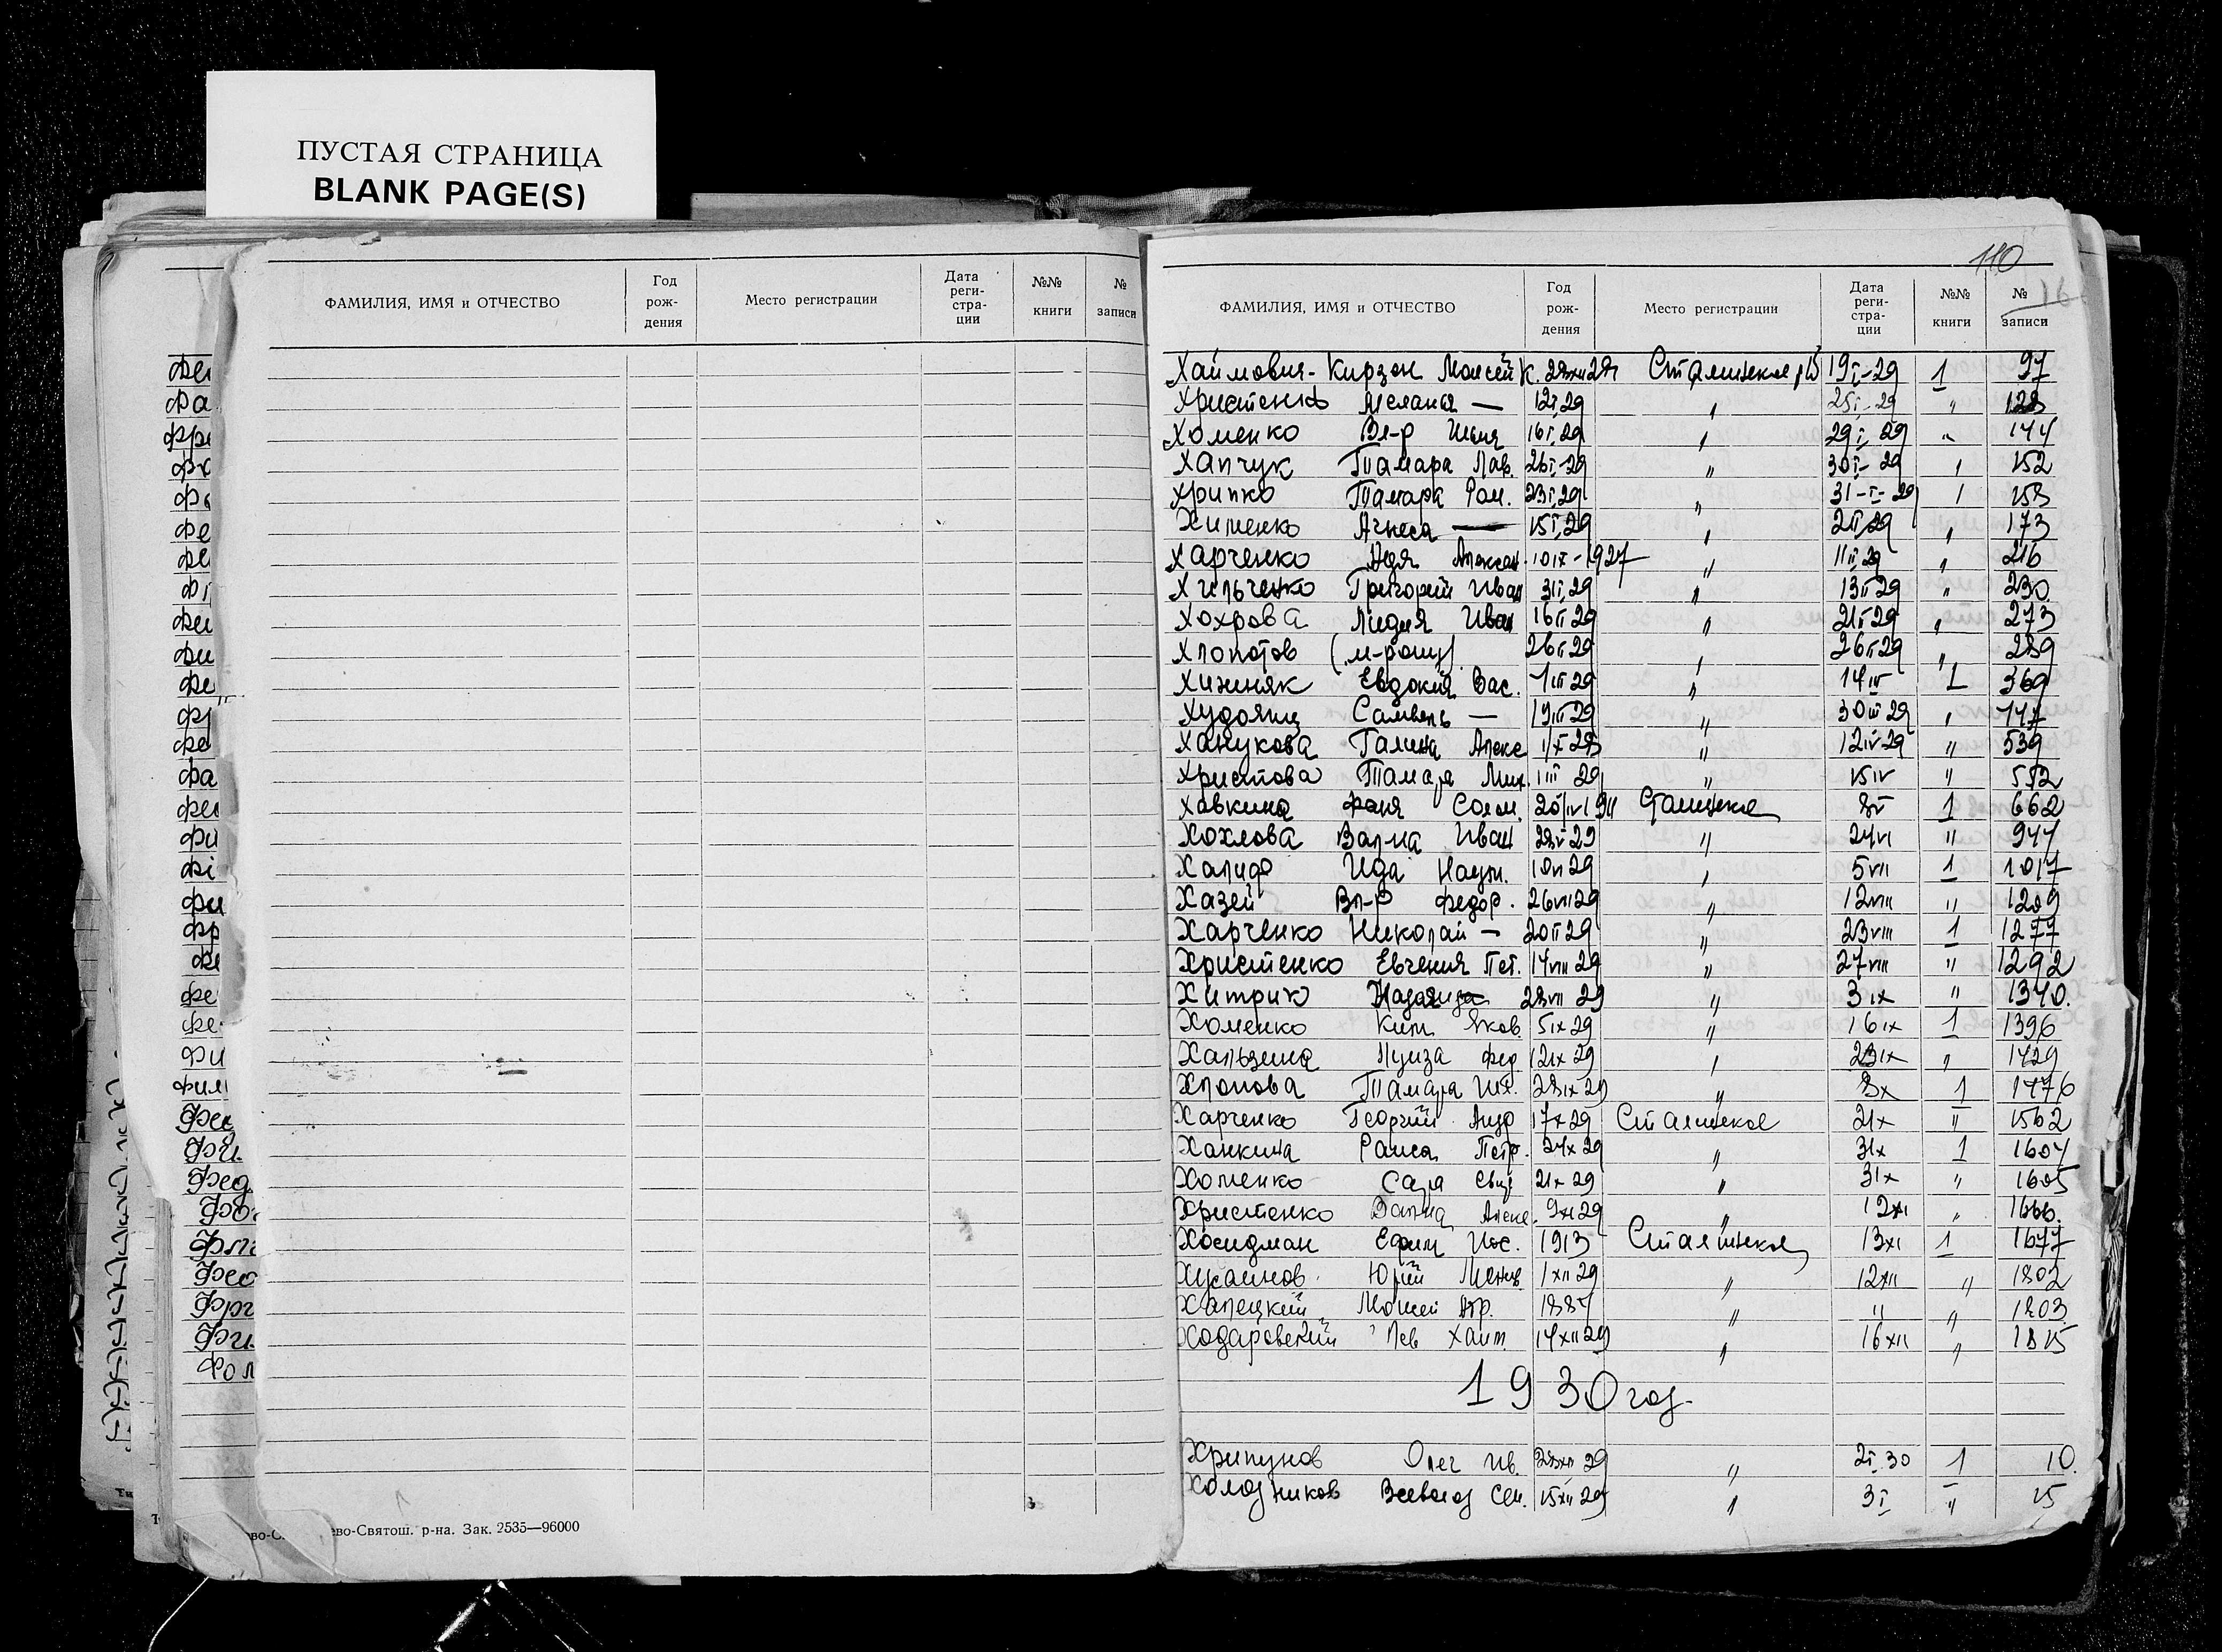 ПУСТАЯ СТРАНИЦА
BLANK PAGE(S)
ФАМИЛИЯ, ИМЯ и ОТЧЕСТВО Год рож- дения Место регистрации Дата реги- стра- ции №№ книги № записи
Фе
Фа
Фр
Фе
Фе
Фи
Фе
Фе
Фа
Фи
Фі
Фи
Фр
Фе
Фе
Фи
Фил
Фед
Фо
Фео
Фри
Фи
Фол
ево-Святош. р-на. Зак. 2535—96000
110
16
ФАМИЛИЯ, ИМЯ и ОТЧЕСТВО Год рож- дения Место регистрации Дата реги- стра- ции №№ книги № записи
Хаймович-Кирзон Моисей К. 28xii28 Сталинское 19I-29 1 97
Христенко Мелания — 12I,29 " 25I-29 " 128
Хоменко Вл-р 16I,29 " 29I,29 " 144
Хапчук Тамара Лав. 26I-29 " 30I-29 " 152
Хрипко Тамара Ром. 23I,29 " 31-I-29 1 158
Хименко Агнеса — 15I,29 " 2II,29 " 173
Харченко Алексан. 10IX-1927 " 11II,29 " 216
Хильченко Григорий Иван 3II,29 " 13II29 " 230
Хохрова Лидия Иван 16II29 " 21II29 " 273
Хлопотов (м-рожд) 26II29 " 26II29 " 289
Хижняк Евдокия Вас. 1III29 " 14III 1 369
Худоянц Самвель — 19III29 " 30III29 " 447
Ханукова Галина Алекс " 12IV29 " 539
Христова Тамара Мих. 1III 29 " 15IV " 552
Хавкина Фаня Солом. 20/IV1911 Сталинское 8V 1 662
Хохлова Вал-на Иван 28V29 " 24VI " 947
Халиф Ида Наум. 10VI29 " 5VII 1 1017
Хазей Вл-р Федор. 26VII29 " 12VIII " 1209
Харченко Николай — 20II29 " 23VIII 1 1277
Христенко Евгения Пет. 14VIII29 " 27VIII " 1292
Хитрик 28VII29 " 3IX " 1340.
Хоменко Ким Яков. 5IX29 " 16IX 1 1396
Хальзина Луиза Фед. 12IX29 " 23IX " 1429
Хлопова Тамара Их. 28IX29 " 8X 1 1476
Харченко Георгий Анд 17X29 Сталинское 21X " 1562
Ханкина Раиса Петр. 24X29 " 31X 1 1604
Хоменко Сара 21X29 " 31X " 1605
Христенко Вал-на Алекс. 9XI29 " 12XI " 1666.
Хосидман Ефим Иос. 1913 Сталинское 13XI 1 1677
Хусаинов Юрий 1XII29 " 12XII " 1802
Халецкий Моисей Абр. 1887 " " " 1803.
Ходаровский Лев Хаим. 14XII29 " 16XII " 1815
1930 год.
Хрипунов Олег Ив. 28XII29 " 2I.30 1 10.
Холодников Всеволод Сем. 15XII29 " 3I " 15